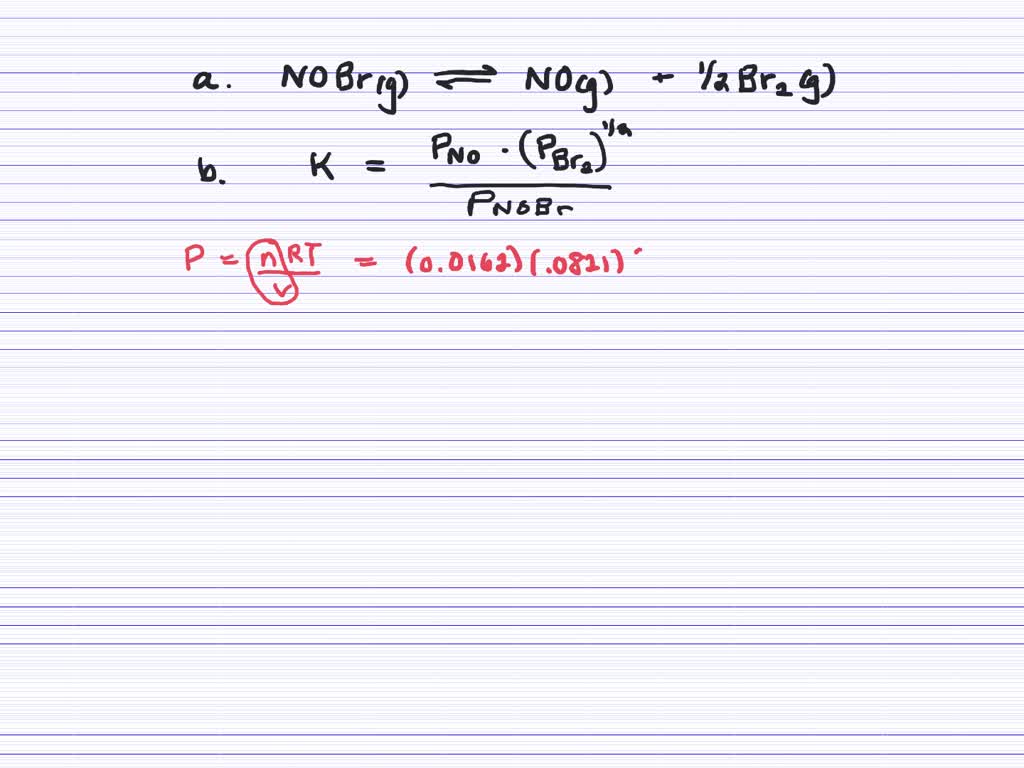 a. NOBr(g) ⇌ NO(g) + 1/2 Br₂(g)
b. K = P_NO · (P_Br₂)^1/2 / P_NOBr
P = n/V RT = (0.0162)(.0821)